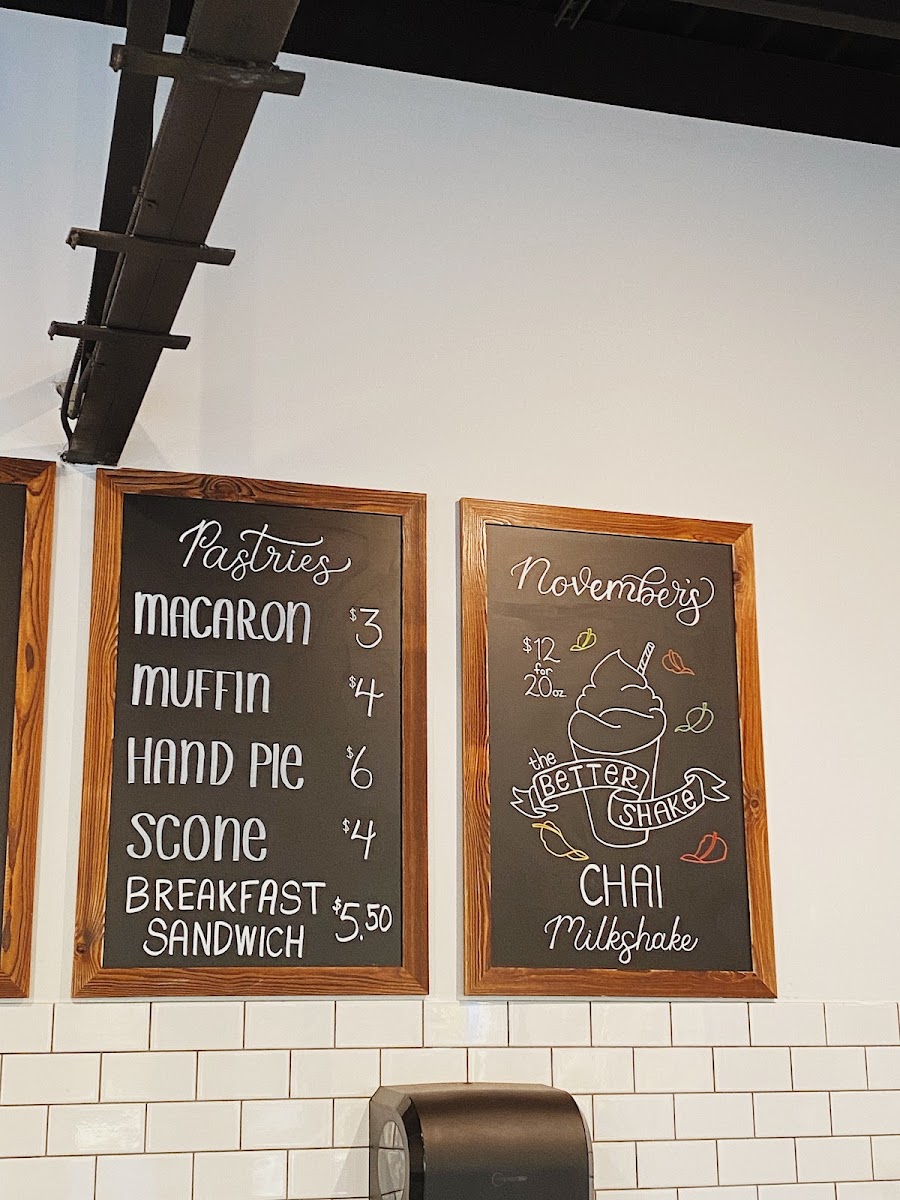 Pastries
MACARON $3
MUFFIN $4
HAND PIE $6
SCONE $4
BREAKFAST
SANDWICH $5.50
November's
$12
for
20oz
the
BETTER
SHAKE
CHAI
Milkshake